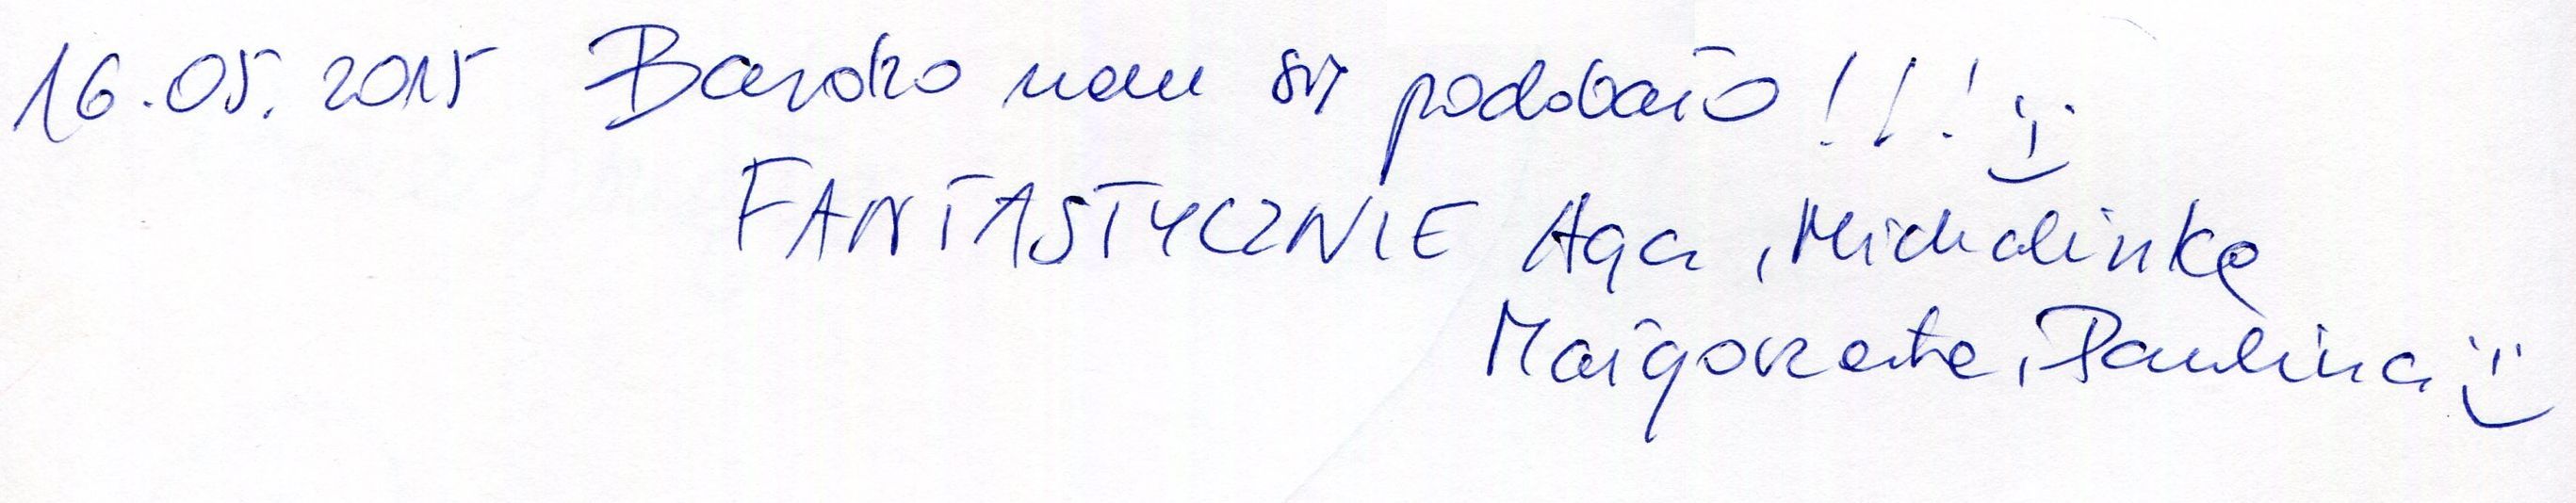 16.05.2015 Bardzo nam się podobało!!! :)
FANTASTYCZNIE Aga, Michalinka
Małgorzata, Paulina :)